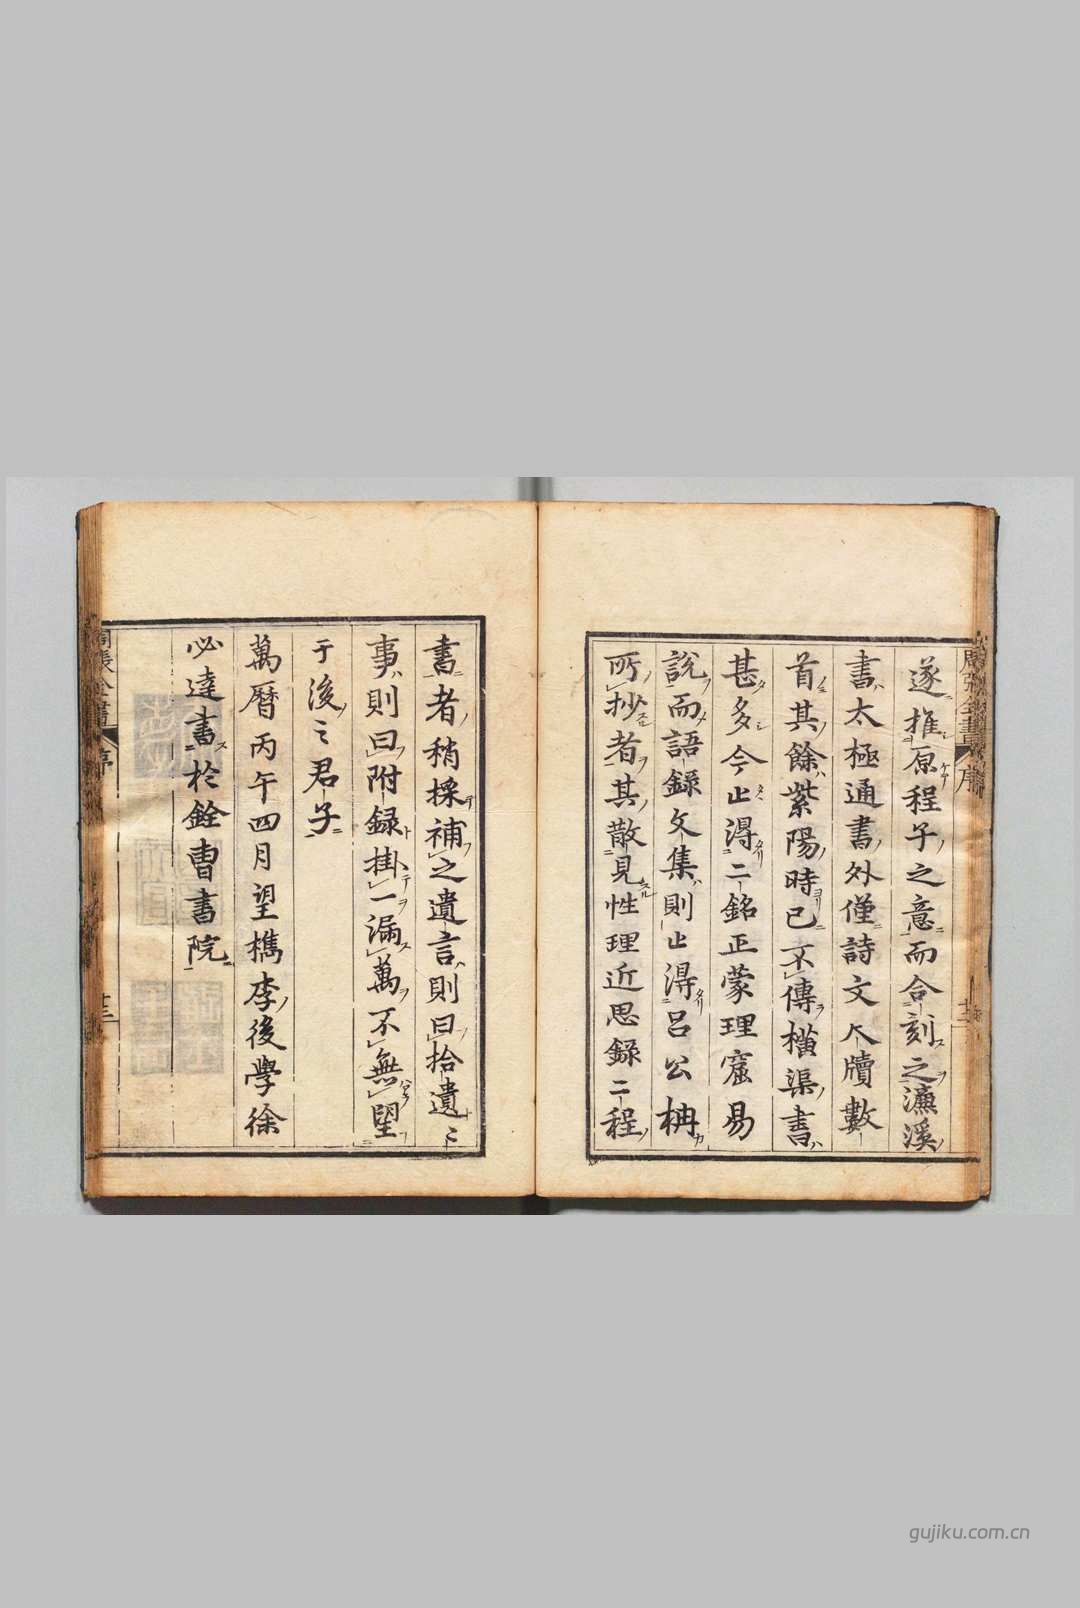 遂推原程子之意而合刻之濂溪
書太極通書外僅詩文尺牘數
首其餘紫陽時已不傳橫渠書
甚多今止得二銘正蒙理窟易
說而語錄文集則止得呂公柟
所抄者其散見性理近思錄二程
書者稍採補之遺言則曰拾遺〻
事則曰附録掛一漏萬不無望
于後之君子
萬曆丙午四月望檇李後學徐
必達書於銓曹書院
周張全書
序
gujiku.com.cn